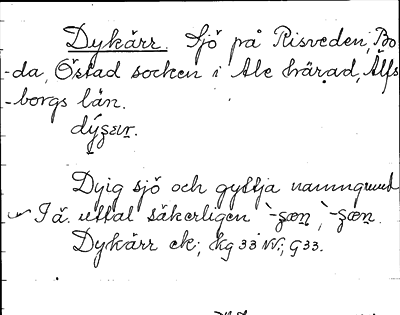 Dykärr. Sjö på Risveden, Bo
-da, Östad socken i Ale härad, Älfs
-borgs län.
dýʂɛιr.
Dyig sjö och gyttja namngrund
I ä. uttal säkerligen `-ʂæn, `-ʂæn.
Dykärr ek; Hg 33 NV; G 33.